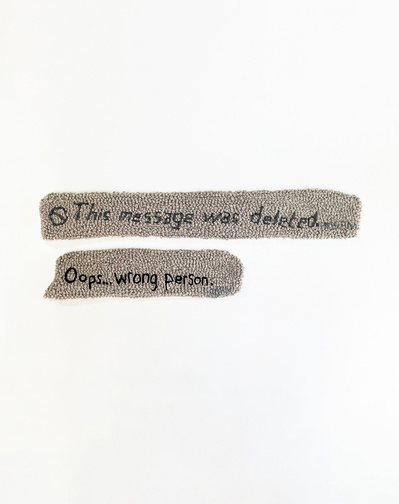 This message was deleted.
Oops... wrong person.